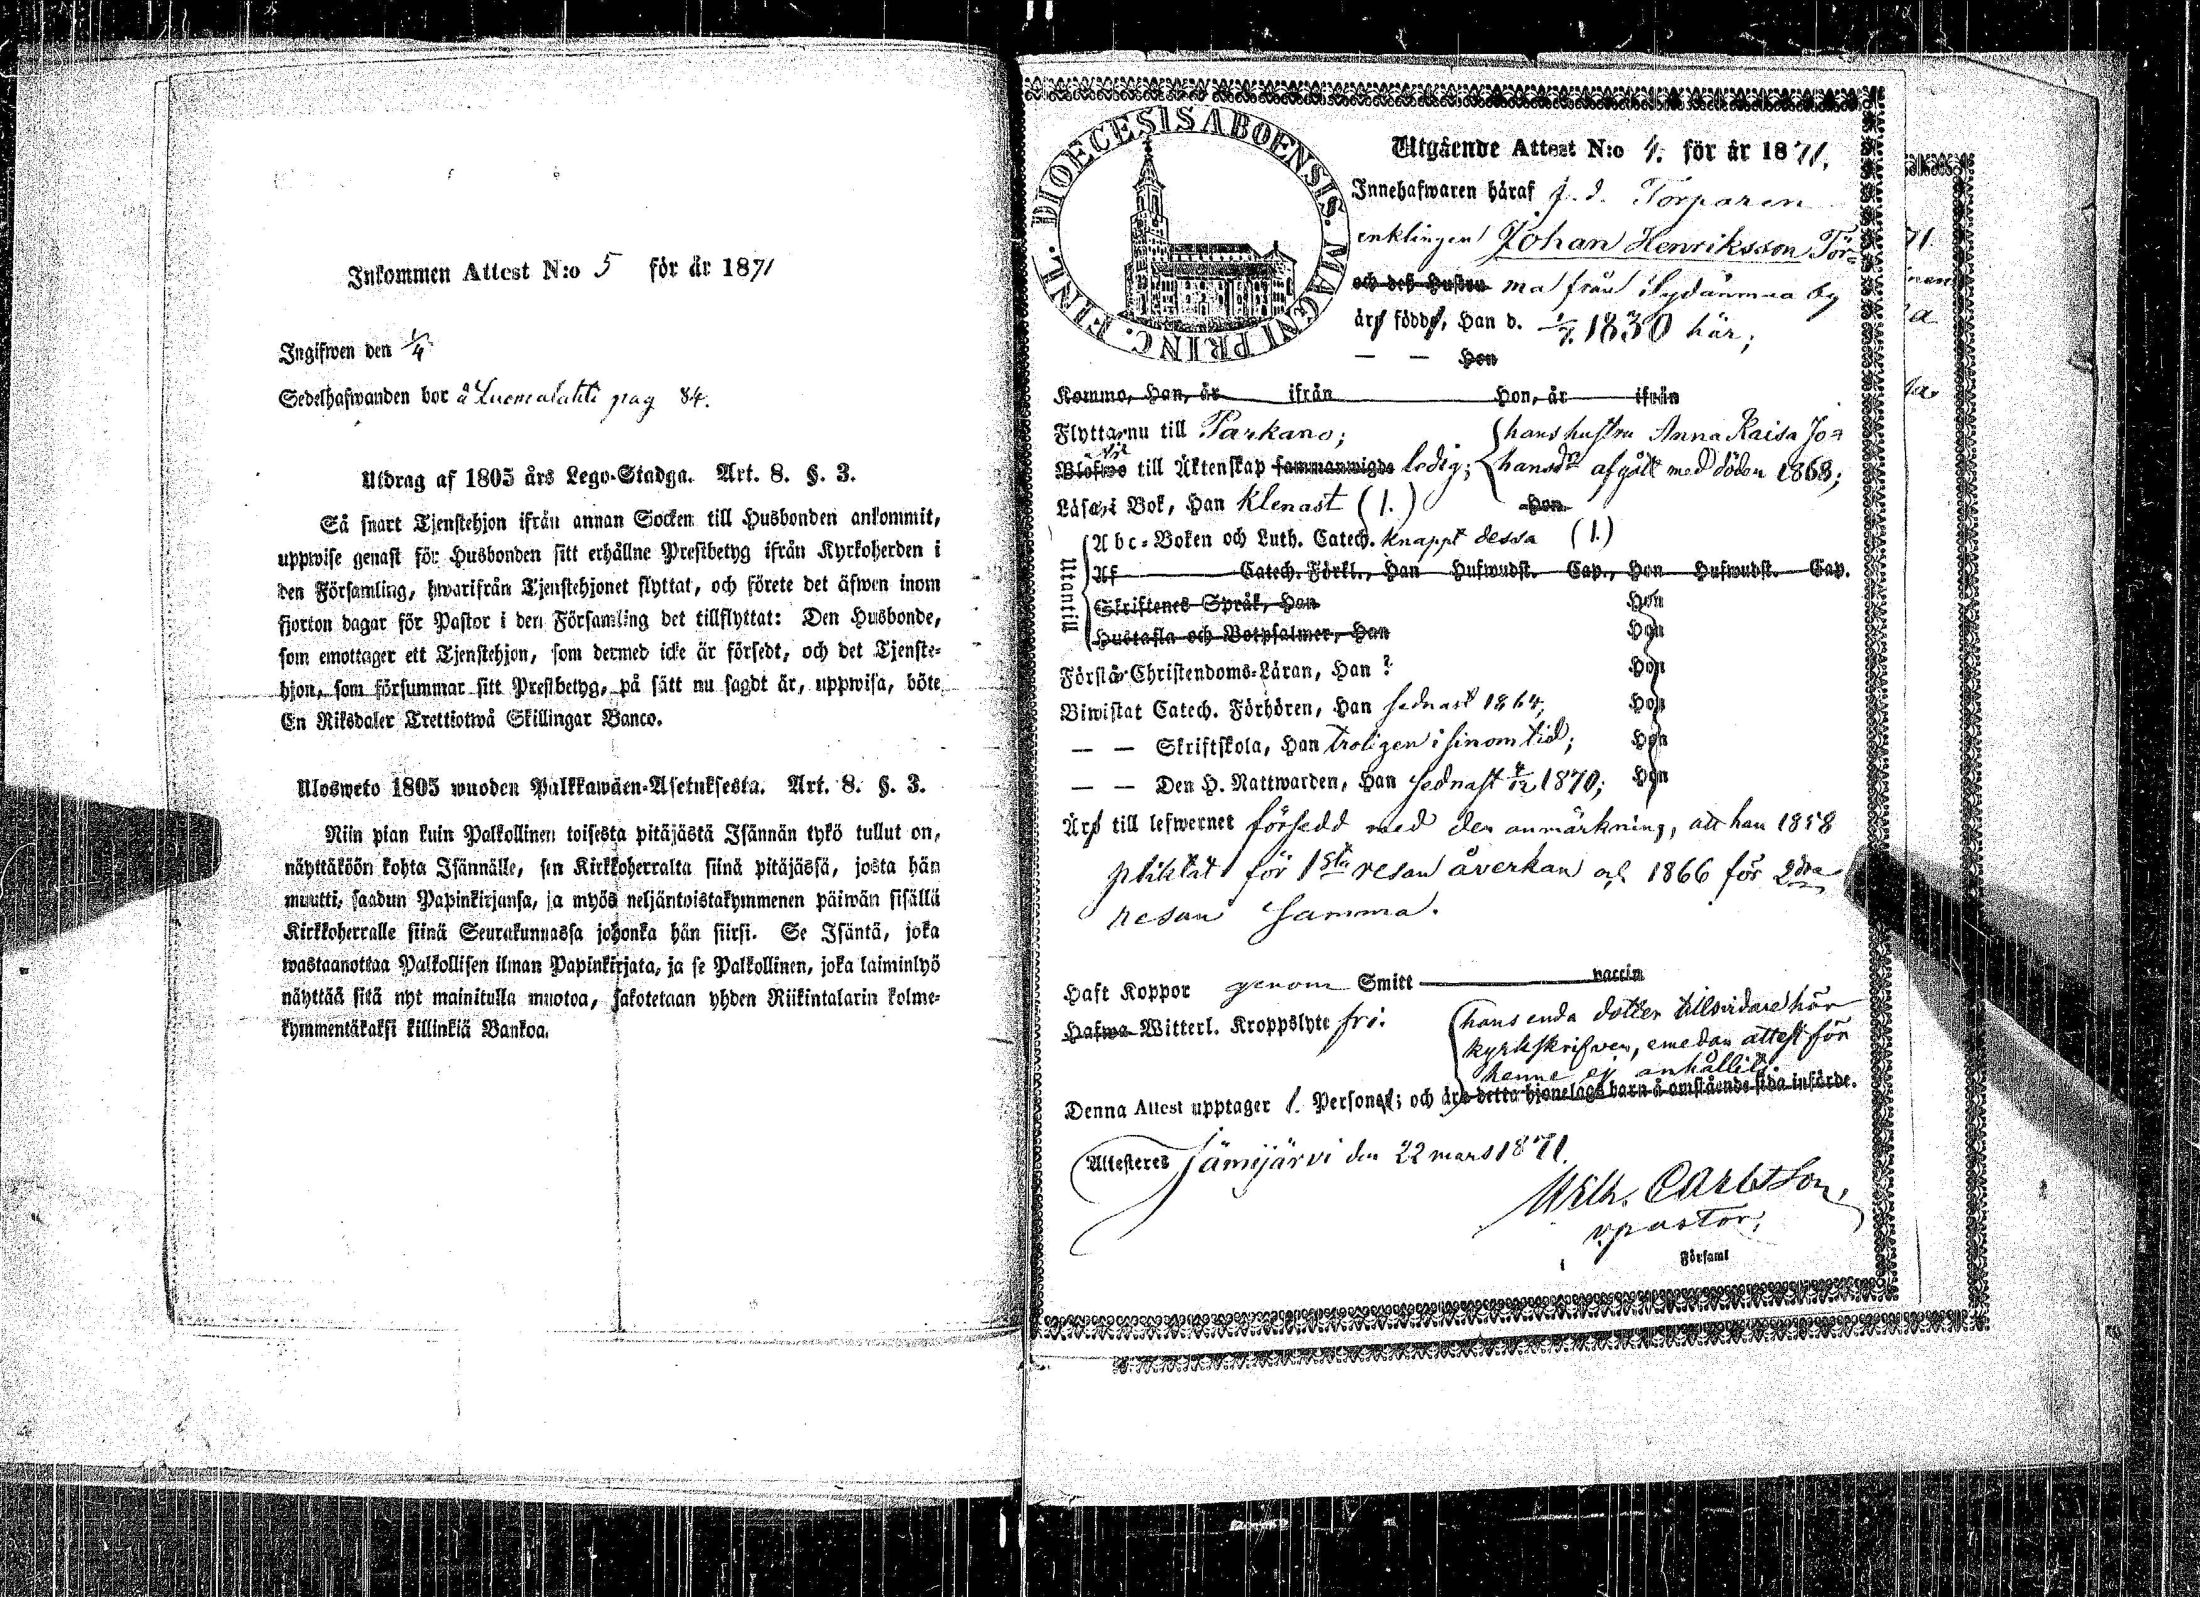 Inkommen Attest N:o 5 för år 1871
Ingifwen den 1/4
Sedelhafwanden bor å Luomalahti pag 84.
Utdrag af 1805 års Lego-Stadga. Art. 8. §. 3.
Så snart Tjenstehjon ifrån annan Socken till Husbonden ankommit,
uppwise genast för Husbonden sitt erhållne Prestbetyg ifrån Kyrkoherden i
den Församling, hwarifrån Tjenstehjonet flyttat, och förete det äfwen inom
fjorton dagar för Pastor i den Församling det tillflyttat: Den Husbonde,
som emottager ett Tjenstehjon, som dermed icke är försedt, och det Tjenste-
hjon, som försummar sitt Prestbetyg, på sätt nu sagdt är, uppwisa, böte
En Riksdaler Trettiotwå Skillingar Banco.
Ulosweto 1805 wuoden Palkkawäen-Asetuksesta. Art. 8. §. 3.
Niin pian kuin Palkollinen toisesta pitäjästä Isännän tykö tullut on,
näyttäköön kohta Isännälle, sen Kirkkoherralta siinä pitäjässä, josta hän
muutti, saadun Papinkirjansa, ja myös neljäntoistakymmenen päiwän sisällä
Kirkkoherralle siinä Seurakunnassa johonka hän siirsi. Se Isäntä, joka
wastaanottaa Palkollisen ilman Papinkirjata, ja se Palkollinen, joka laiminlyö
näyttää sitä nyt mainitulla muotoa, sakotetaan yhden Riikintalarin kolme-
kymmentäkaksi killinkiä Bankoa.
DIOECESIS ABOENSIS. MAGNI PRINC. FINL.
Utgående Attest N:o 4. för år 1871.
Innehafwaren häraf f. d. Torparen
enklingen Johan Henriksson Tör-
och deß Hustru ma från Sydänmaa by
äro födde, Han d. 1/7 1830 här;
— — Hon
Komme, Han, år ifrån Hon, år ifrån
Flytta nu till Parkano; hans hustru Anna Kaisa Jo-
till Äktenskap sammanwigde ledig; hansdr afgått med döden 1868;
Läsa i Bok, Han klenast (1.) Hon
Utantill
Abc-Boken och Luth. Catech. knappt dessa (1.)
Af Catech. Förkl., Han Hufwudst. Cap., Hon Hufwudst. Cap.
Skriftenes Språk, Han Hon
Hustafla och Botpsalmer, Han Hon
Förstå Christendoms-Läran, Han ? Hon
Biwistat Catech. Förhören, Han sednast 1864, Hon
— — Skriftskola, Han troligen i sinom tid; Hon
— — Den H. Nattwarden, Han sednast 4/12 1870; Hon
Äro till lefwernet försedd med den anmärkning, att han 1858
pliktat för 1sta resan åverkan och 1866 för 2dra
resan samma.
Haft Koppor genom Smitt vaccin
Hafwa Witterl. Kroppslyte fri.
hans enda dotter tillsvidare här
kyrkskrifven, emedan attest för
henne ej anhållits.
Denna Attest upptager 1. Personer; och äro detta hjonelags barn å omstående sida införde.
Attesteres Jämijärvi den 22 mars 1871.
Wilh. Carlsson,
v. pastor.
Församl